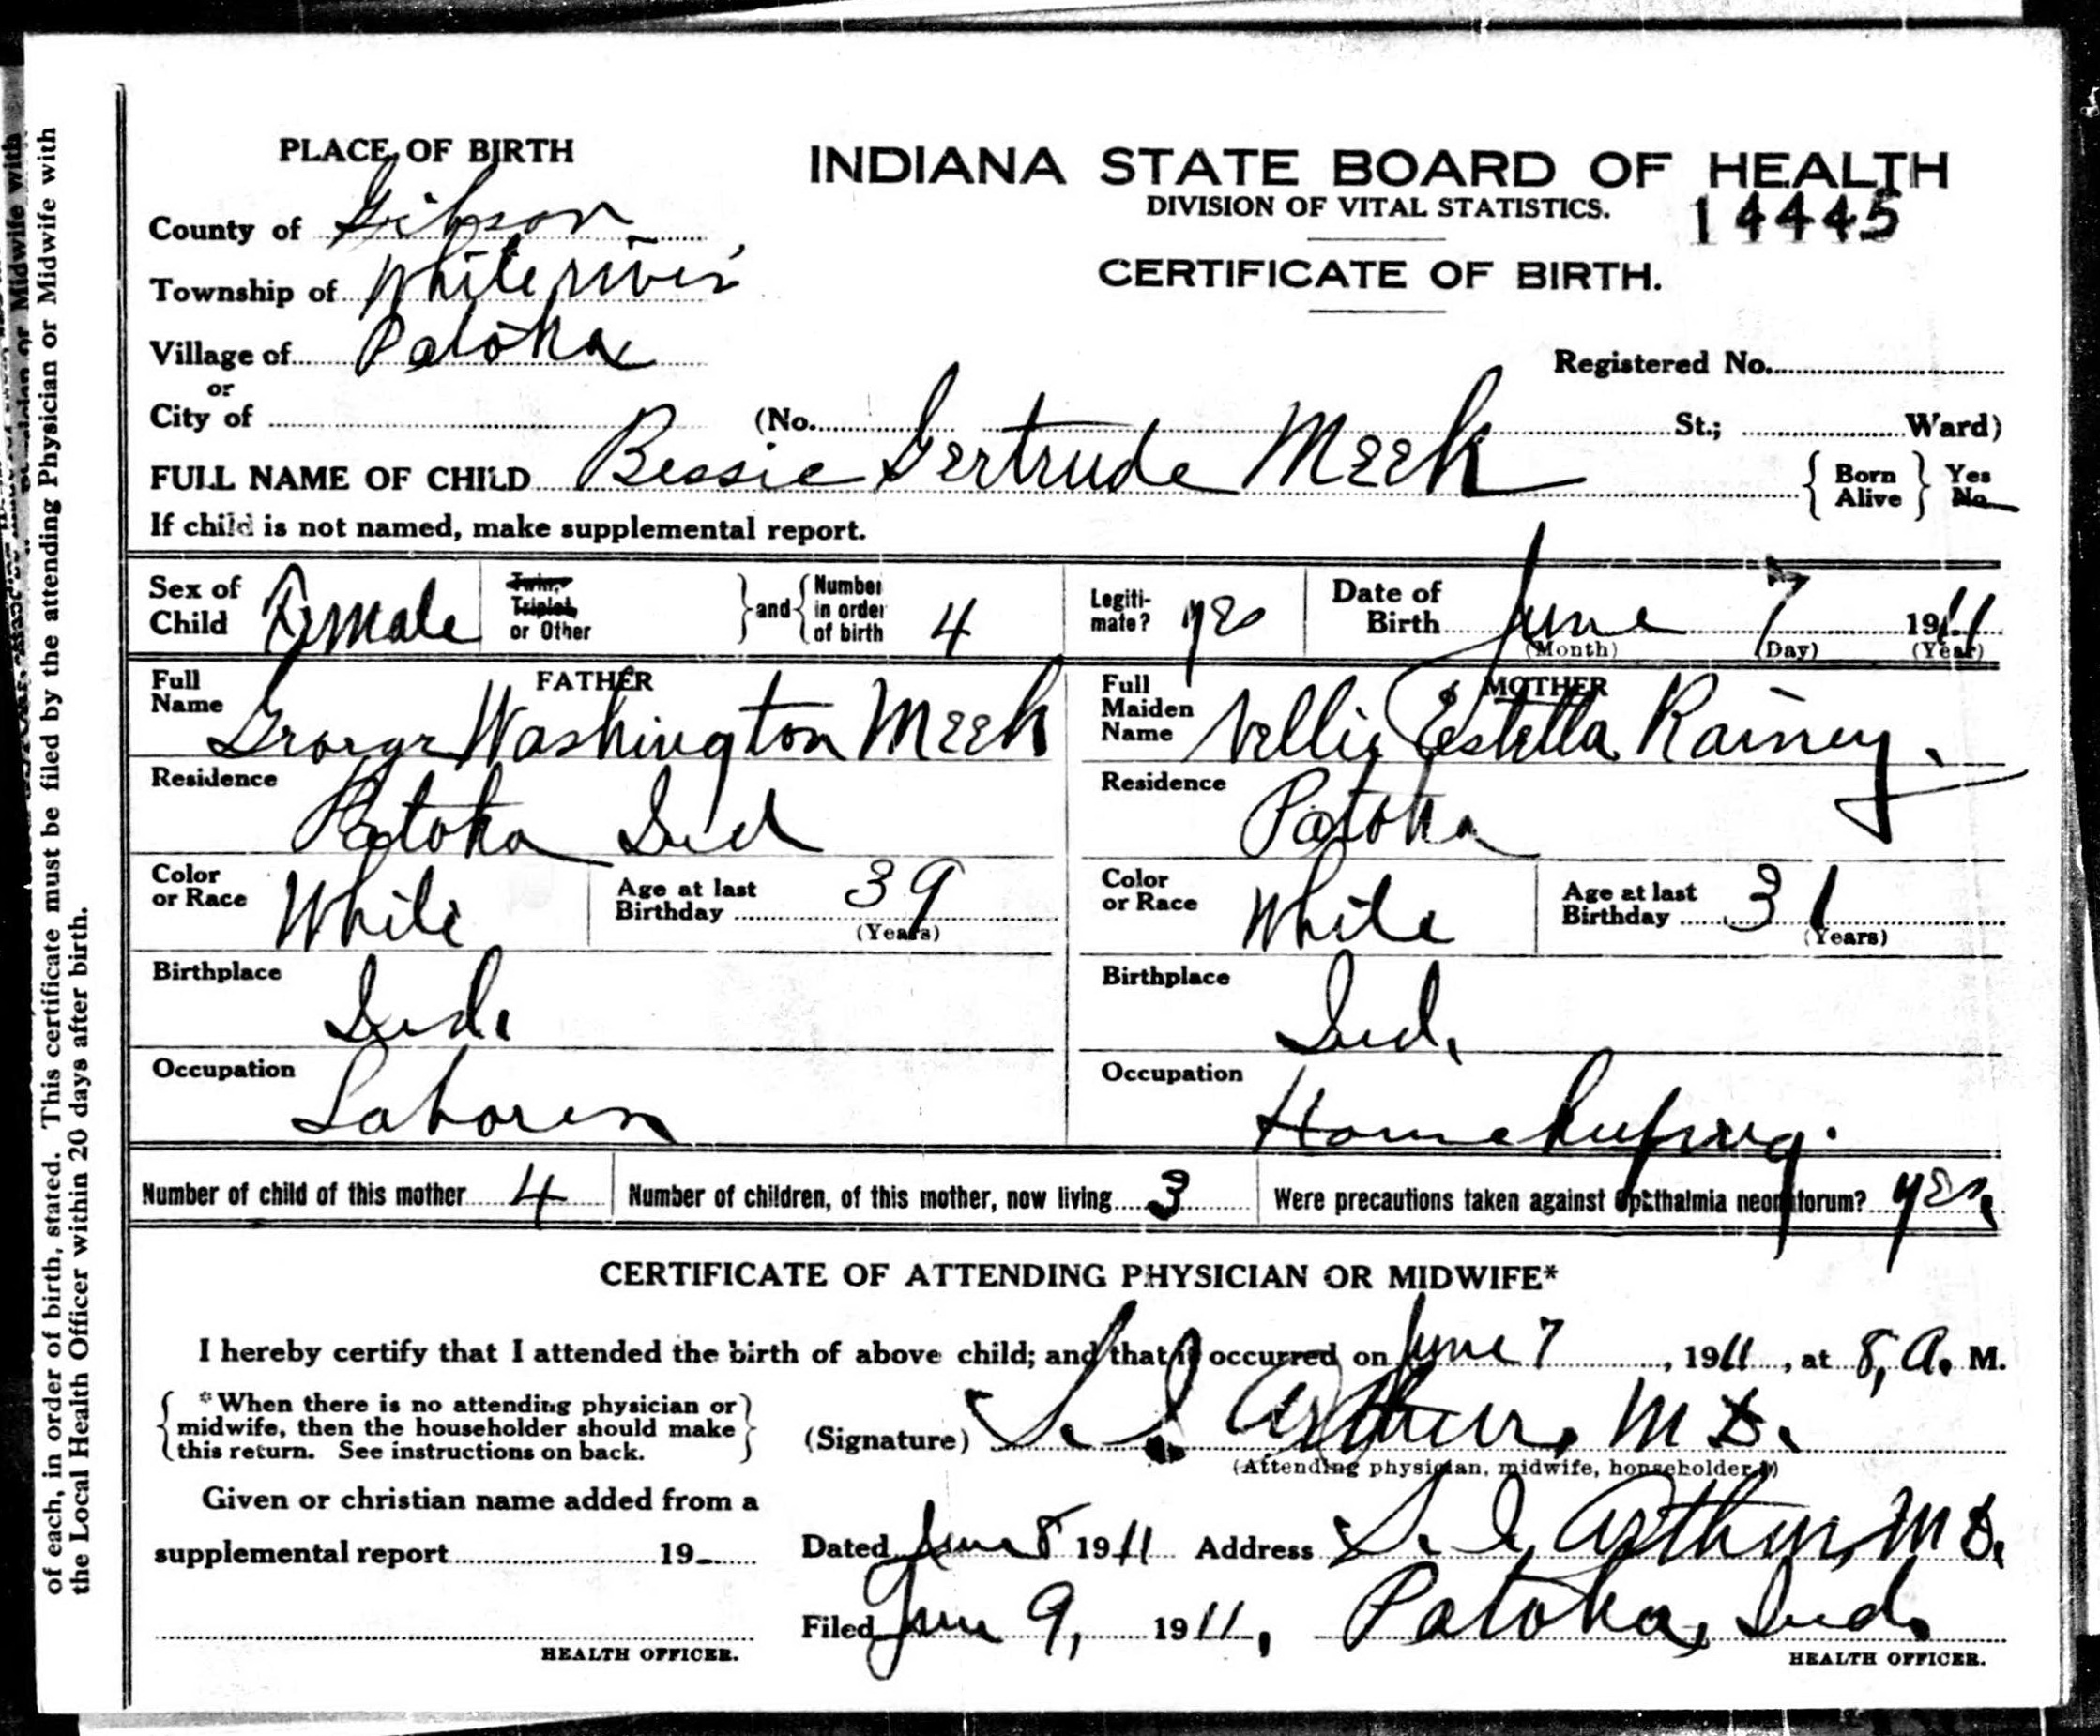 PLACE OF BIRTH
INDIANA STATE BOARD OF HEALTH
DIVISION OF VITAL STATISTICS.
14445
CERTIFICATE OF BIRTH.
County of Gibson
Township of White river
Village of Patoka
or
City of
Registered No.
(No. St.; Ward)
FULL NAME OF CHILD Bessie Gertrude Meek { Born Alive } Yes No
If child is not named, make supplemental report.
Sex of Child Female
Twin, Triplet, or Other } and { Number in order of birth 4
Legiti-mate? yes
Date of Birth June 7 1911
(Month) (Day) (Year)
FATHER
Full Name George Washington Meek
Residence Patoka Ind
Color or Race White
Age at last Birthday 39
(Years)
Birthplace Ind.
Occupation Laborer
MOTHER
Full Maiden Name Nellie Estella Rainey.
Residence Patoka
Color or Race White
Age at last Birthday 31
(Years)
Birthplace Ind.
Occupation Homekeeping.
Number of child of this mother 4
Number of children, of this mother, now living 3
Were precautions taken against Ophthalmia neonatorum? yes.
CERTIFICATE OF ATTENDING PHYSICIAN OR MIDWIFE*
I hereby certify that I attended the birth of above child; and that it occurred on June 7, 1911, at 8, A. M.
{ *When there is no attending physician or
midwife, then the householder should make
this return. See instructions on back. }
(Signature) S. I. Arthur, M D.
(Attending physician, midwife, householder.)
Given or christian name added from a
supplemental report 19
HEALTH OFFICER.
Dated June 8 1911 Address S. I. Arthur, M D.
Filed June 9, 1911, Patoka, Ind.
HEALTH OFFICER.
of each, in order of birth, stated. This certificate must be filed by the attending Physician or Midwife with
the Local Health Officer within 20 days after birth.